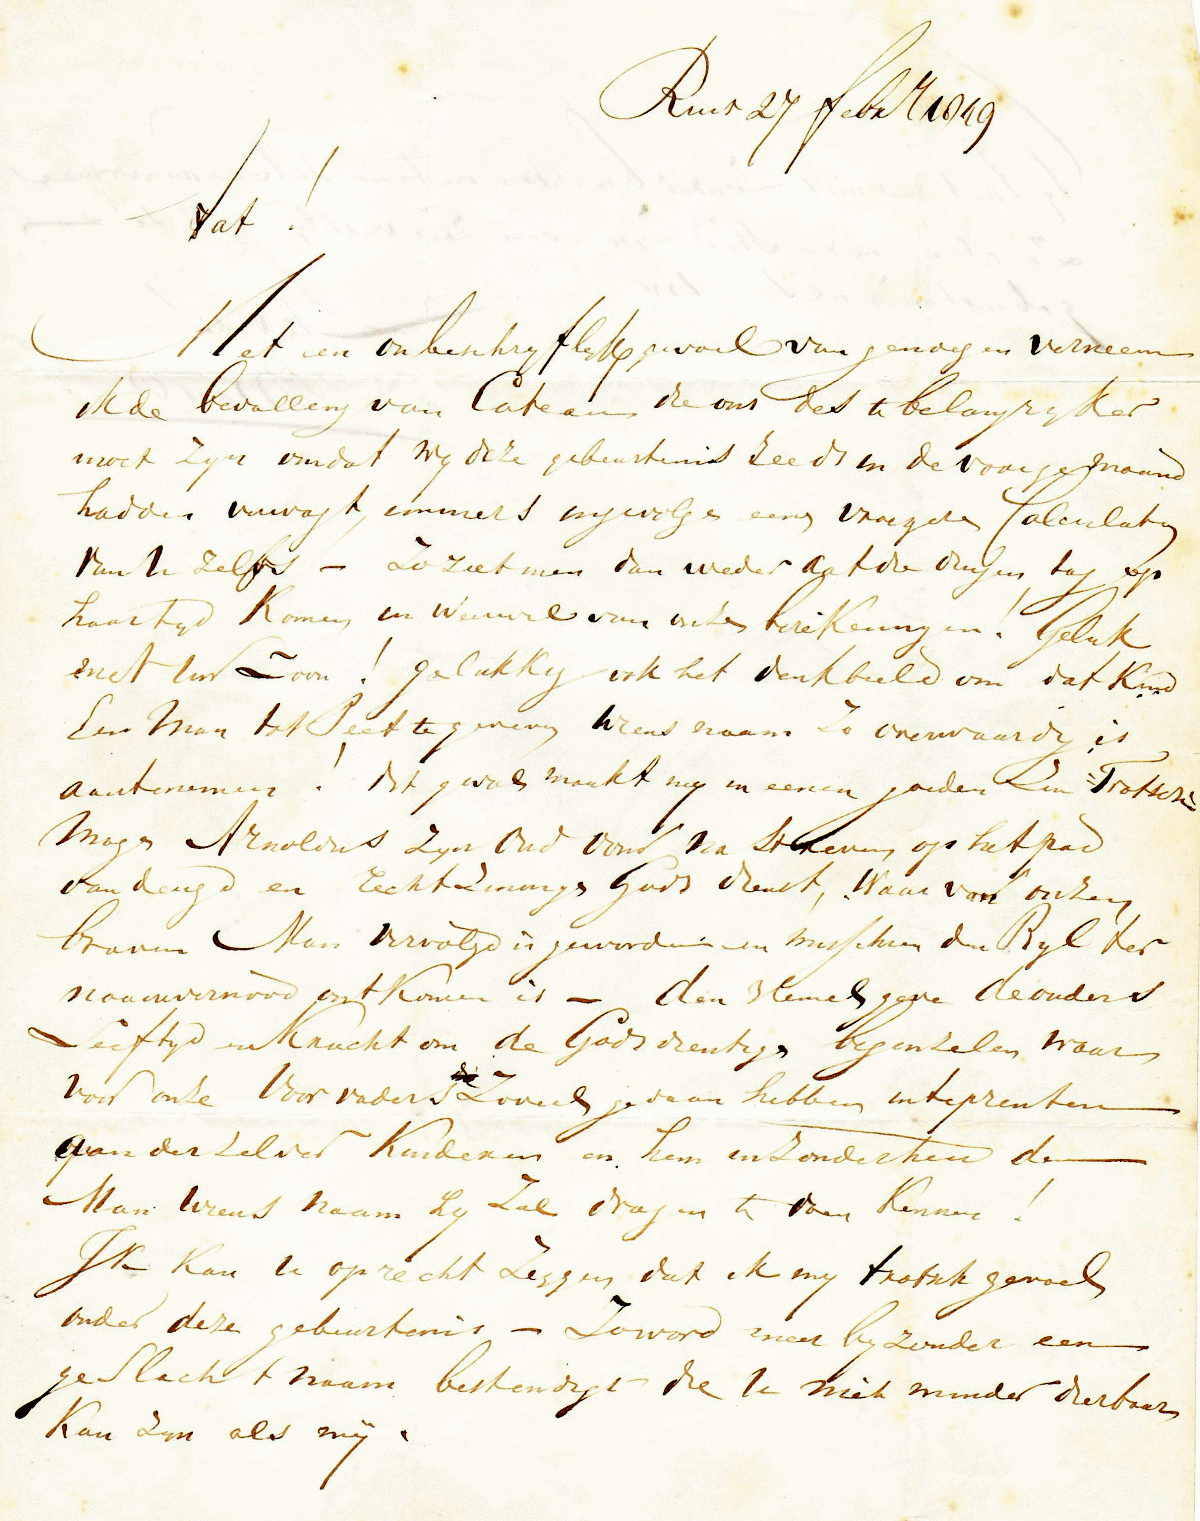 27 feb 1849
Aat !
Met een onbeschryflyk gevoel van genoegen verneem
ik de bevalling van Cateau die ons des te belangryker
moet zyn omdat wy deze gebeurtenis reeds in de voorge maand
hadden verwagt, immers ingevolge eene vroegere Calculatie
van U zelfs — Zo ziet men dan weder dat die dingen tog op
haar tyd komen in weerwil van onze berekeningen ! Geluk
met Uw Zoon ! gelukkig ook het denkbeeld om dat Kind
Een Man tot Peet te geven wiens naam Zo overwaardig is
aantenemen ! dit gevoel maakt my in eenen goeden Zin Trotsch
Moge Arnoldus zyn Oud Oom na streven op het pad
van deugd en rechtzinnige Gods dienst, Waar van onzen
braven Man vervolgd is geworden en misschien den Byl ter
naauwernood ontkomen is — den Hemel geve de ouders
Leeftyd en Kracht om de Godsdienstige beginzelen waar
voor onze Voorvaders Zoveel gedaan hebben inteprenten
aan derzelver Kinderen en hem inzonderheid den
Man wiens naam hy Zal dragen te doen Kennen !
Ik Kan U oprecht Zeggen dat ik my trotsch gevoel
onder deze gebeurtenis — Zo word meer byzonder een
geslacht naam bestendigt die U niet minder dierbaar
Kan zyn als mÿ.